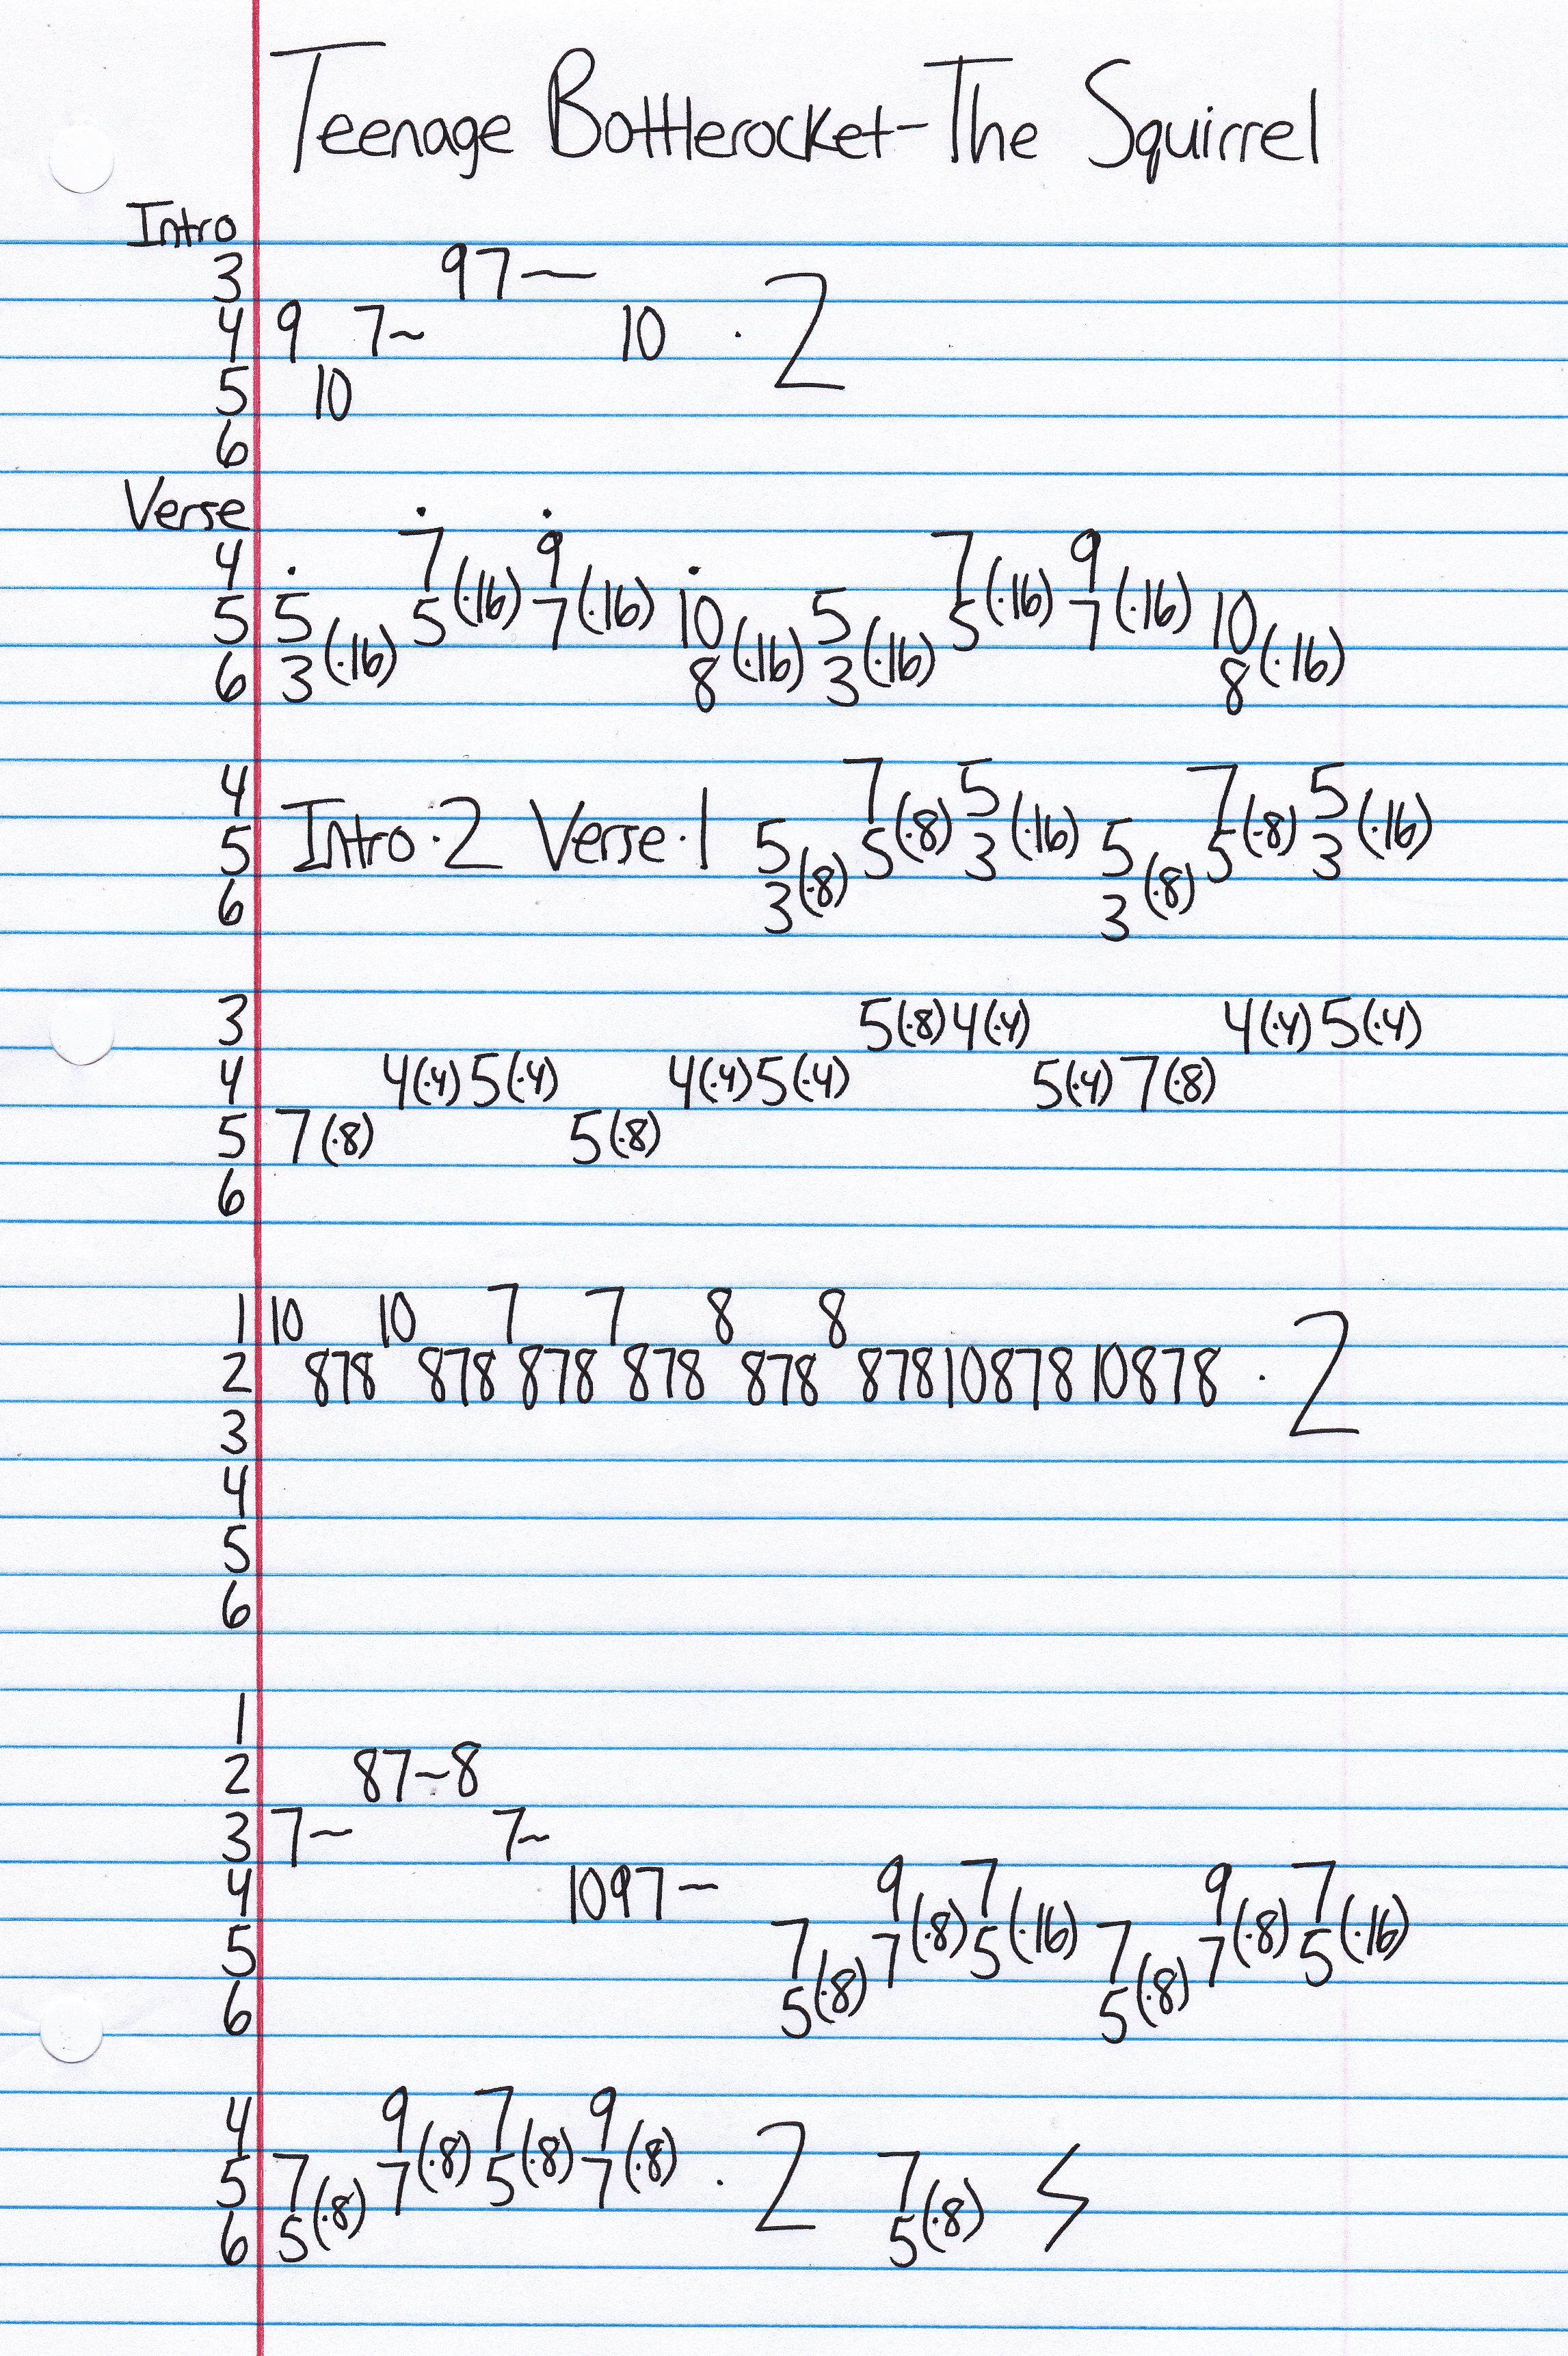 Teenage Bottlerocket-The Squirrel
Intro
3 97~
4 9 7~ 10 · 2
5 10
6
Verse
4 7 (·16) 9 (·16) 7 (·16) 9 (·16)
5 5 5 7 10 5 5 7 10
6 3 (·16) 8 (·16) 3 (·16) 8 (·16)
4 7 (·8) 5 (·16) 7 (·8) 5 (·16)
5 Intro·2 Verse·1 5 5 3 5 5 3
6 3 (·8) 3 (·8)
3 5(·8) 4(·4) 4(·4) 5(·4)
4 4(·4) 5(·4) 4(·4) 5(·4) 5(·4) 7(·8)
5 7(·8) 5(·8)
6
1 10 10 7 7 8 8
2 878 878 878 878 878 87810878 10878 · 2
3
4
5
6
1
2 87~8
3 7~ 7~
4 1097~ 9 (·8) 7 (·16) 9 (·8) 7 (·16)
5 7 7 5 7 7 5
6 5 (·8) 5 (·8)
4 9 (·8) 7 (·8) 9 (·8)
5 7 7 5 7 · 2 7
6 5 (·8) 5 (·8)